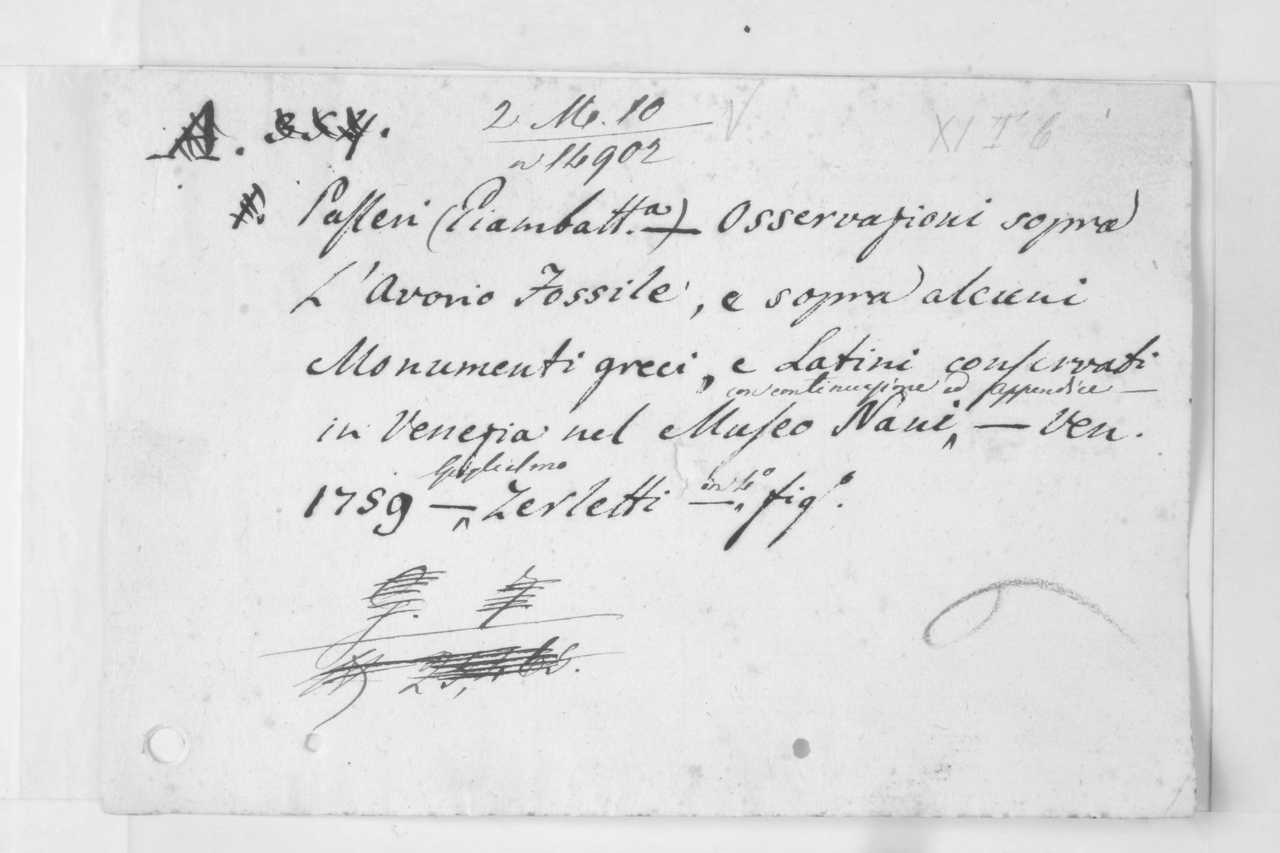 A. XXX.
2 M. 10
n 14902
XI I 6
Passeri (Giambatt.a) — Osservazioni sopra
L'Avorio Fossile, e sopra alcuni
Monumenti greci, e Latini conservati
con continuazione ed appendice —
in Venezia nel Museo Nani, — Ven.
Guglielmo
1759 — Zerletti — in 4.° fig.°